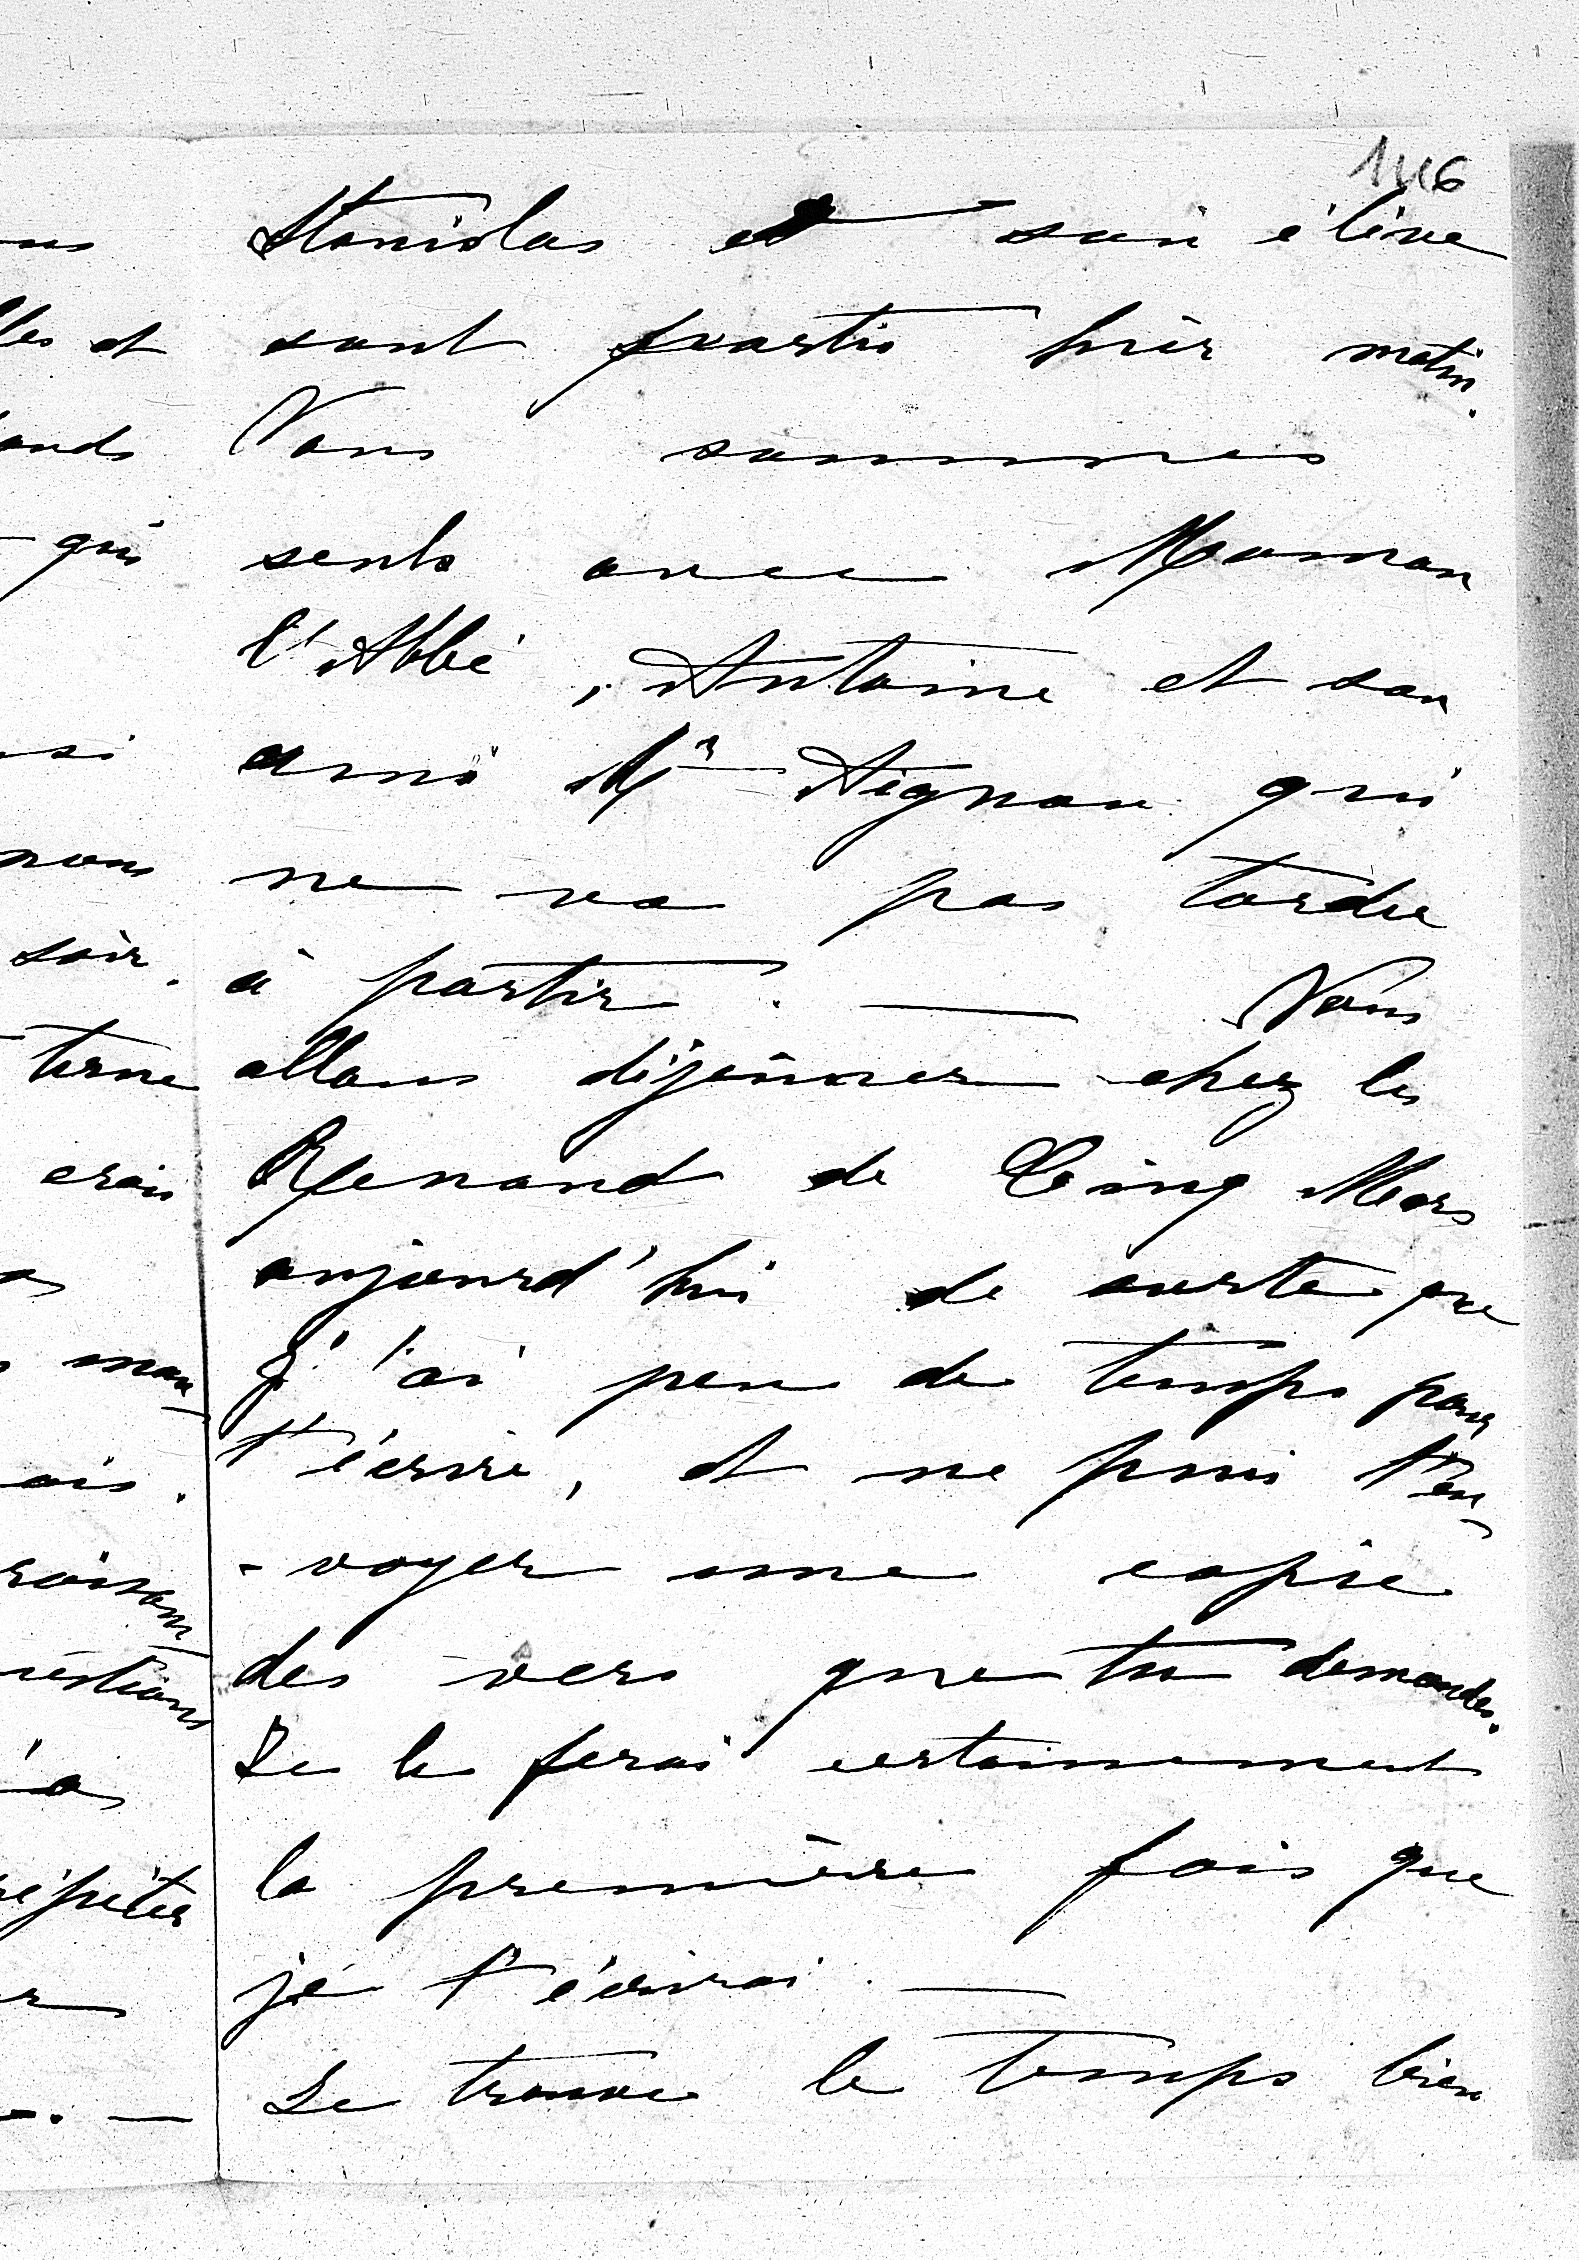 146
Stanislas et son élève
sont partis hier matin.
Nous sommes
seuls avec Maman
l'Abbé, Antoine et son
ami Mr Aignan qui
ne va pas tarder
à partir. — Nous
allons déjeûner chez les
Renand de Cinq Mars
aujourd'hui de sorte que
j'ai peu de temps pour
t'écrire, et ne puis t'en-
-voyer une copie
des vers que tu demandes.
Je le ferai certainement
la première fois que
je t'écrirai. —
Je trouve le temps bien